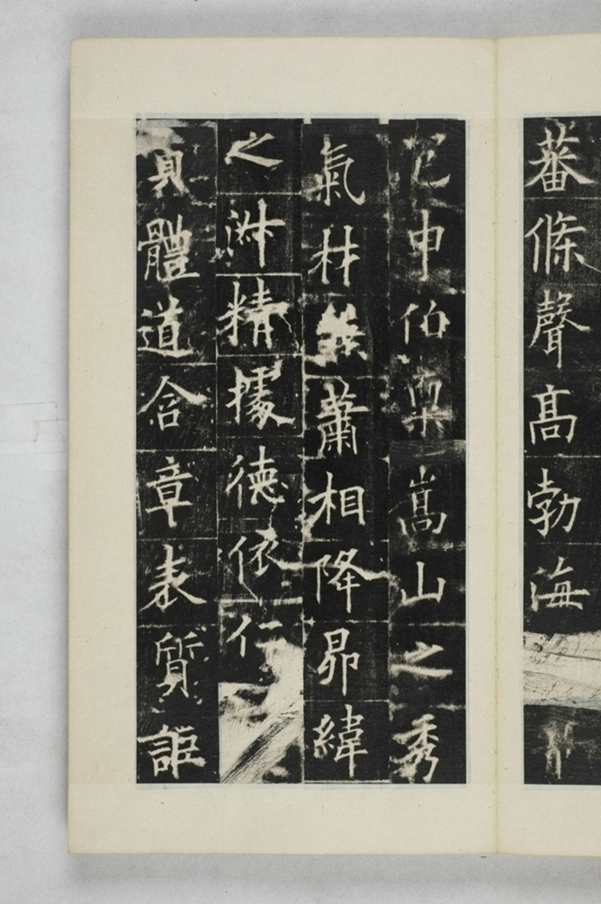 蕃條聲高勃海
申伯稟嵩山之秀
氣材蕭相降昴緯
之淑精據德依仁
貞體道含章表質詎